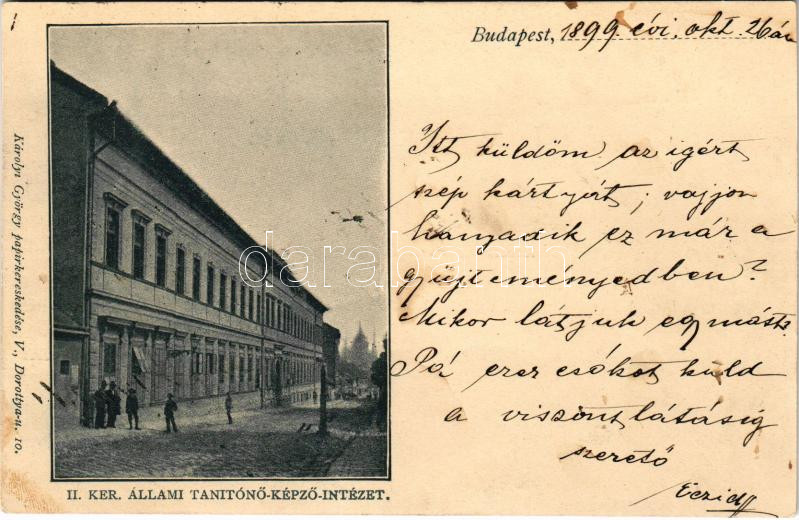 Budapest, 1899. évi. okt. 26án
Itt küldöm az igért
szép kártyát; vajjon
hanyadik ez már a
gyüjteményedben?
Mikor látjuk egymást?
Pá ezer csókot küld
a viszontlátásig
szerető
Károlyi György papirkereskedése, V., Dorottya-u. 10.
II. KER. ÁLLAMI TANITÓNŐ-KÉPZŐ-INTÉZET.
darabanth